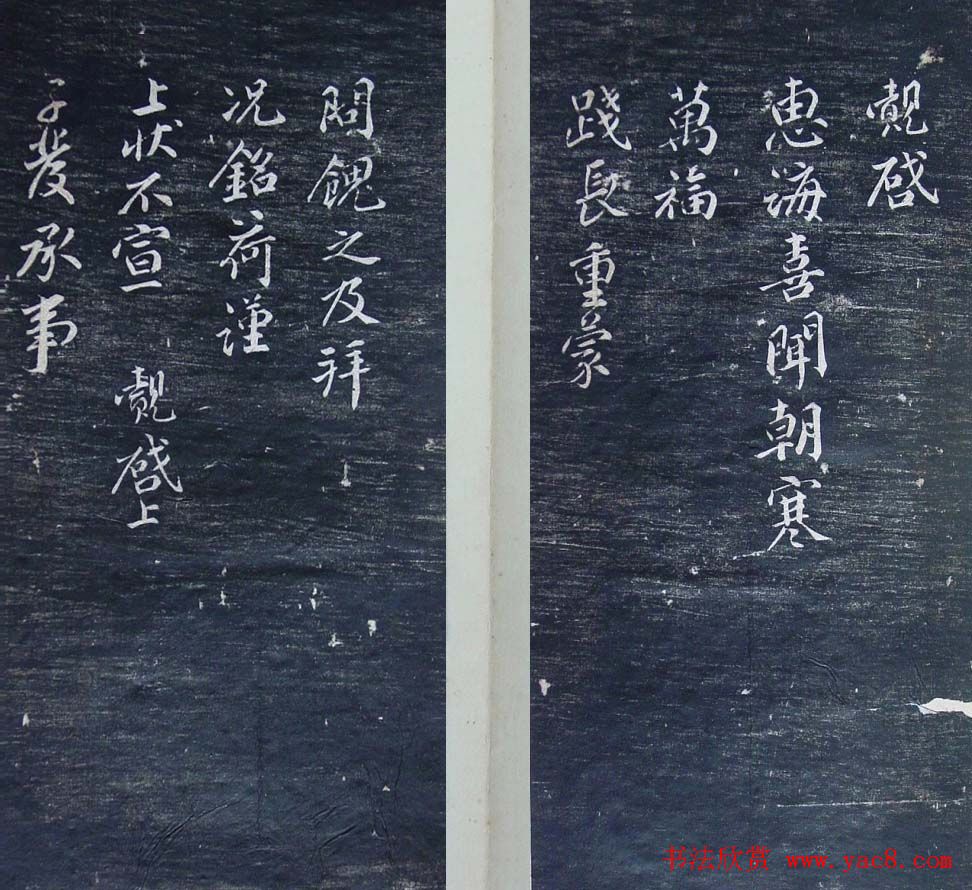 觌啓
惠海喜聞朝寒
萬福
践長重蒙
問餽之及拜
况銘荷謹
上状不宣 觌啓上
子發承事
书法欣赏 www.yac8.com